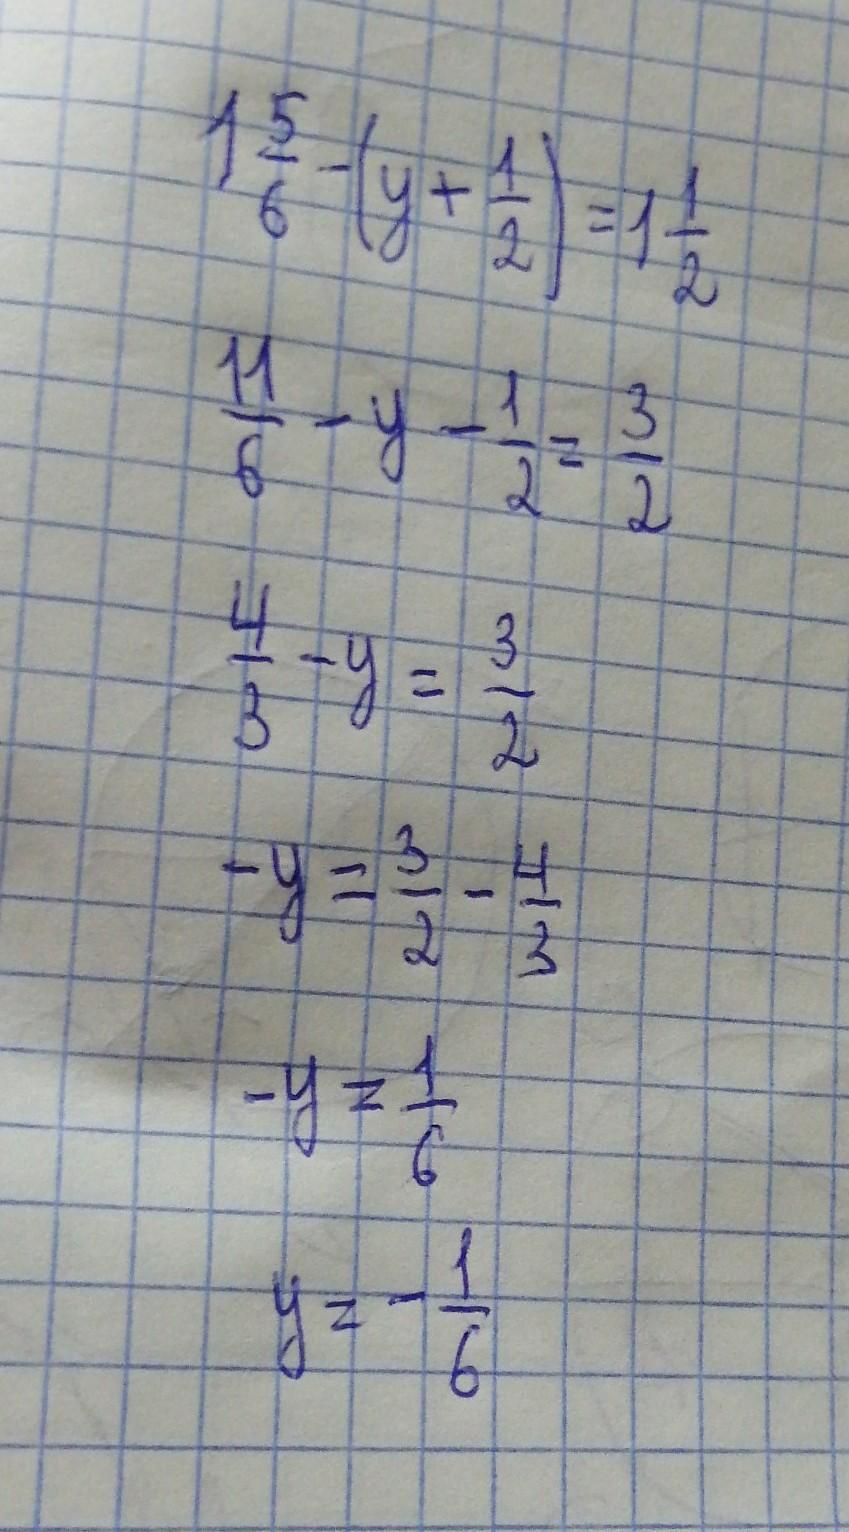 1 5/6 - (y + 1/2) = 1 1/2
11/6 - y - 1/2 = 3/2
4/3 - y = 3/2
-y = 3/2 - 4/3
-y = 1/6
y = - 1/6